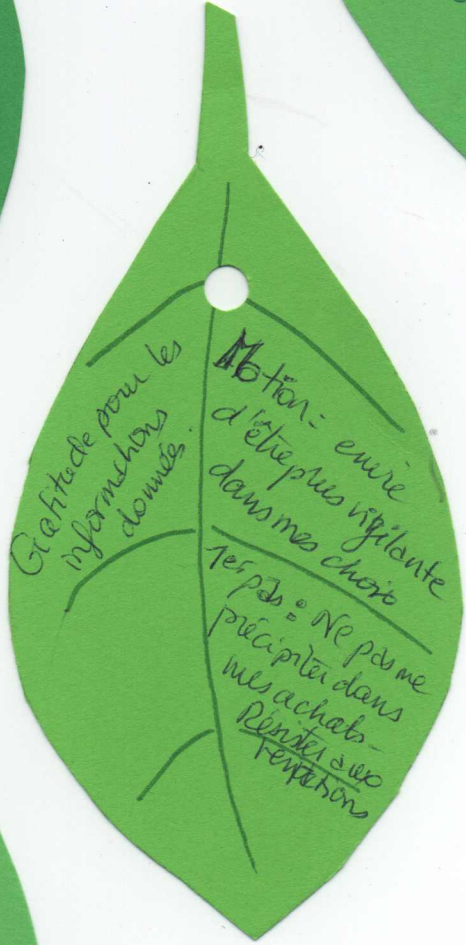 Gratitude pour les
informations
données.
Motion : envie
d'être plus vigilante
dans mes choix
1er pas : Ne pas me
précipiter dans
mes achats -
Résister aux
tentations